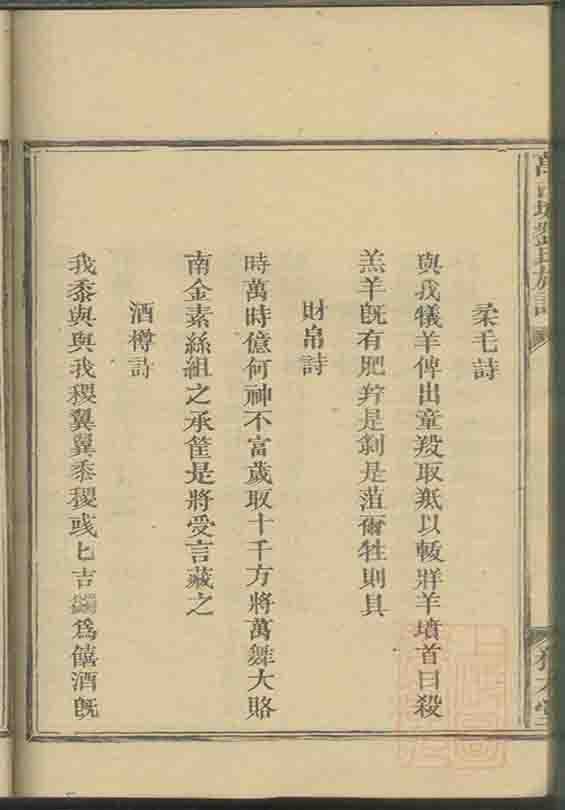 柔毛詩
與我犧羊俾出童羖取羝以軷牂羊墳首曰殺
羔羊旣有肥羜是剝是菹爾牲則具
財帛詩
時萬時億何神不富歲取十千方將萬舞大賂
南金素絲組之承筐是將受言藏之
酒樽詩
我黍與與我稷翼翼黍稷彧匕吉為僖酒旣
氏族